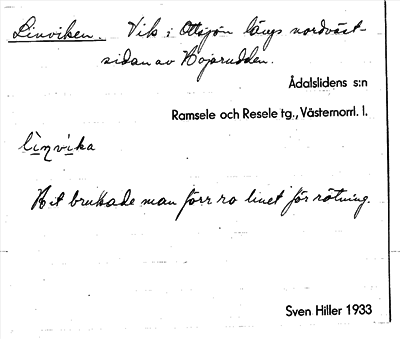 Linviken. Vik i Ottsjön längs nordväst-
sidan av Hojarudden.
Ådalslidens s:n
Ramsele och Resele tg., Västernorrl. l.
lìnvìka
Hit brukade man förr ro linet för rötning.
Sven Hiller 1933